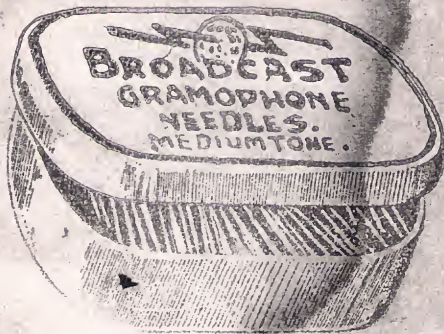 BROADCAST
GRAMOPHONE
NEEDLES.
MEDIUMTONE.